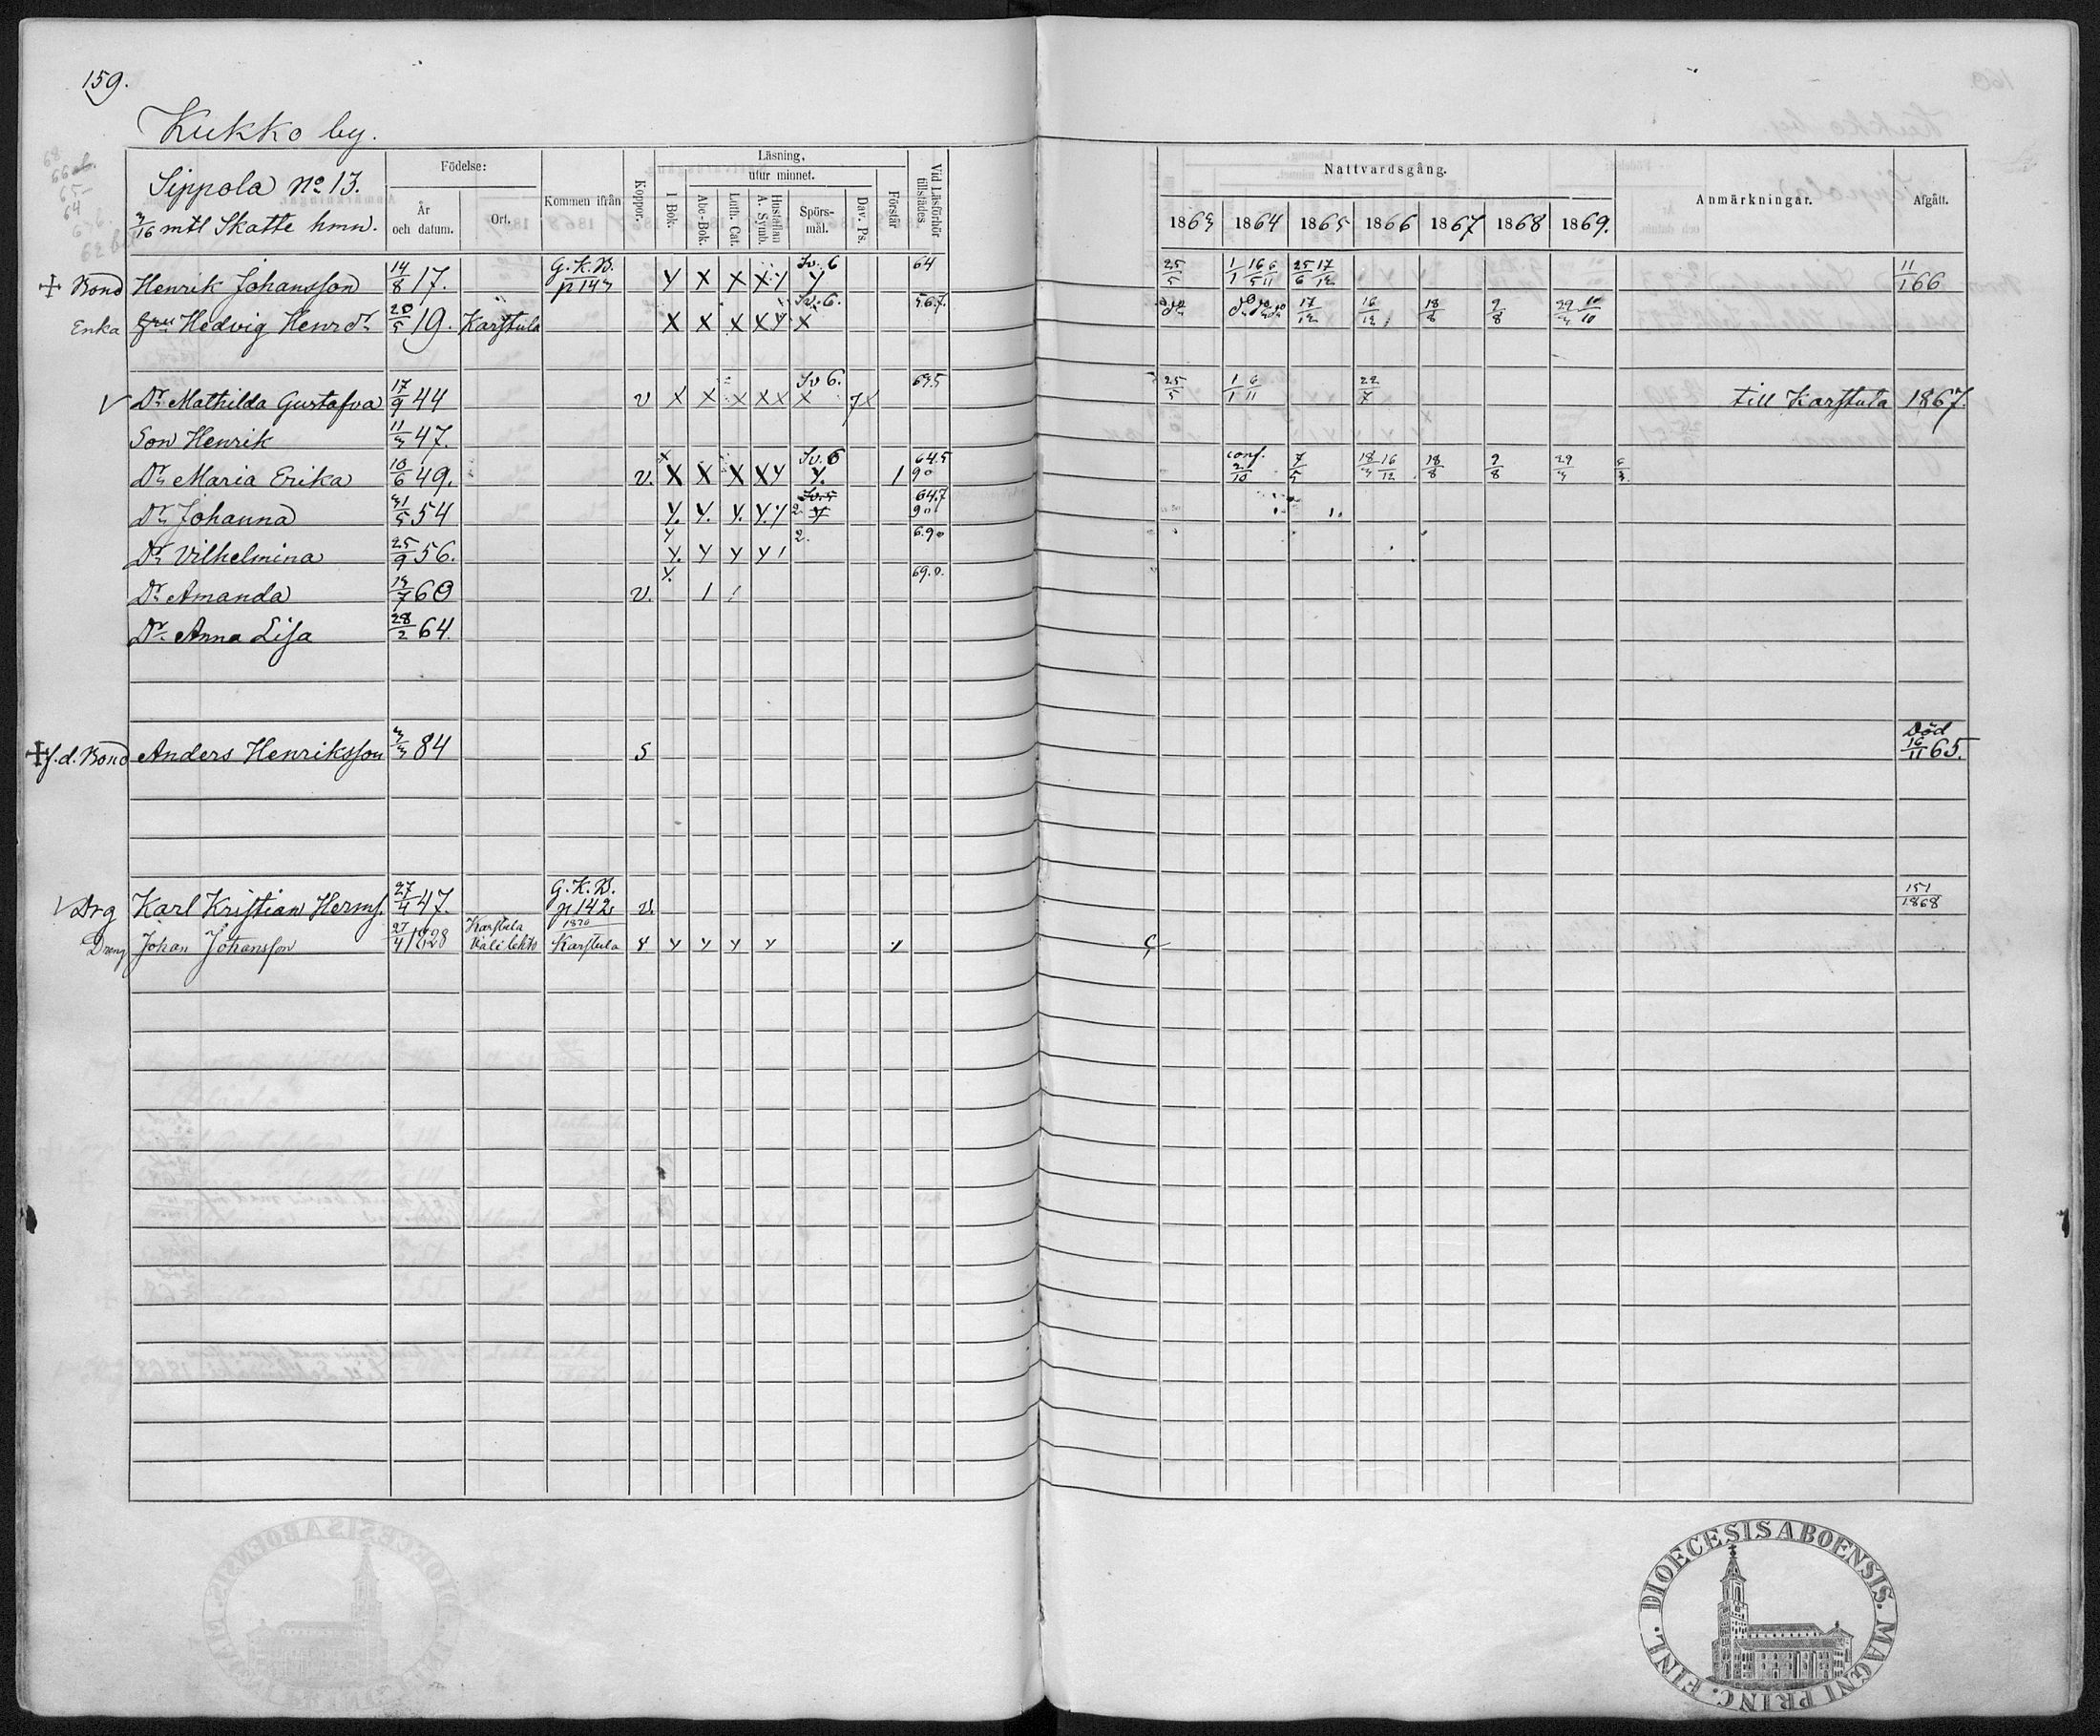 159.
Kukko by.
Sippola No 13.
3/16 mtl Skatte hmn.
Födelse:
År och datum.
Ort.
Kommen ifrån
Koppor.
Läsning.
utur minnet.
I Bok.
Abc-Bok.
Luth. Cat.
Hustaflan A. Symb.
Spörs-mål.
Dav. Ps.
Förstår
Vid Läsförhör tillstädes
Nattvardsgång.
1863 1864 1865 1866 1867 1868 1869.
Anmärkningar.
Afgått.
Bond Henrik Johansson 14/8 17. G. K. B. p 143 Y X X X Y Sv. 6 Y 64 25/5 1/1 16/5 6/11 25/6 17/12 11/1 66
Enka Hedvig Henrdr 20/5 19. Karstula X X X X Y Sv. 6. X 5.6.7. do 17/12 16/12 18/8 2/8 29/3 10/10
V Dr Mathilda Gustafva 17/9 44 v X X X X X Sv 6. X 63.5 25/5 1/1 6/11 22/7 till Karstula 1867.
Son Henrik 11/3 47.
Dr Maria Erika 10/6 49. v. X X X X Y Sv. 6 Y. 1 64.5 90 conf. 2/10 7/5 18/3 16/12 18/8 2/8 29/3
Dr Johanna 31/5 54 Y. Y. Y. Y. Y 2. 64.7 90
Dr Vilhelmina 25/9 56. Y Y. Y Y Y 1 2. 6.90
Dr Amanda 13/7 60 v. Y. 1 69.0.
Dr Anna Lisa 28/2 64.
f.d. Bond Anders Henriksson 3/3 84 s Död 16/11 65.
V Drg Karl Kristian Herms. 27/4 47. G. K. B. p 142 v. 151/1868
Dreng Johan Johansson 27/4 1828 Karstula Kalilehto 1870 Karstula Y Y Y Y
DIOECESIS ABOENSIS. MAGNI PRINC. FINL.